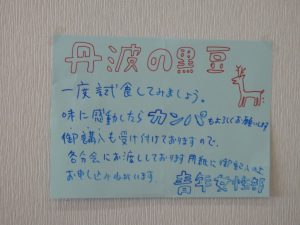 丹波の黒豆
一度試食してみましょう。
味に感動したらカンパもよろしくお願いします
御購入も受け付けておりますので、
各分会にお渡ししております用紙に御記入の上
お申し込み下さいます。
青年女性部